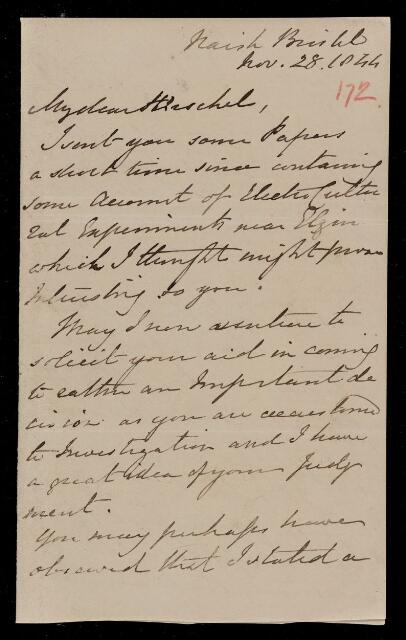 Naish Bristol
Nov. 28. 1844
172
My dear Herschel,
I sent you some Papers
a short time since containing
some Account of Electro Cultu
ral Experiments near Elgin
which I thought might prove
Interesting to you.
May I now venture to
solicit your aid in coming
to rather an Important de
cision as you are accustomed
to Investigation and I have
a great idea of your Judg
ment.
You may perhaps have
observed that I stated a